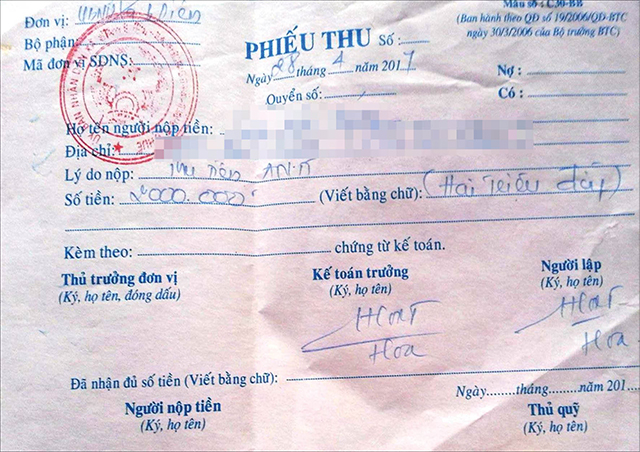 Đơn vị:
Mẫu số : C30-BB
Bộ phận:
(Ban hành theo QĐ số 19/2006/QĐ-BTC
Mã đơn vị SDNS:
ngày 30/3/2006 của Bộ trưởng BTC)
PHIẾU THU Số:
Ngày 28 tháng 4 năm 2017
Nợ :
Quyển số:
Có :
Họ tên người nộp tiền:
Địa chỉ:
Lý do nộp: thu tiền
Số tiền: 2000.000đ (Viết bằng chữ): (Hai triệu đ
Kèm theo: chứng từ kế toán.
Thủ trưởng đơn vị Kế toán trưởng Người lập
(Ký, họ tên, đóng dấu) (Ký, họ tên) (Ký, họ tên)
HoaT HoaT
Hoa Hoa
Đã nhận đủ số tiền (Viết bằng chữ):
Ngày........tháng.........năm 201....
Người nộp tiền Thủ quỹ
(Ký, họ tên) (Ký, họ tên)